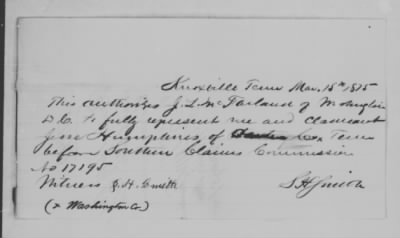 Knoxville Tenn Mar. 15th 1875
This authorizes J. L. McFarland of Washington
D. C. to fully represent me and claimant
Humphries of Co. Tenn
before Southern Claims Commission
No 17195
Witness J. H. Smith S H Smith
(& Washington Co)